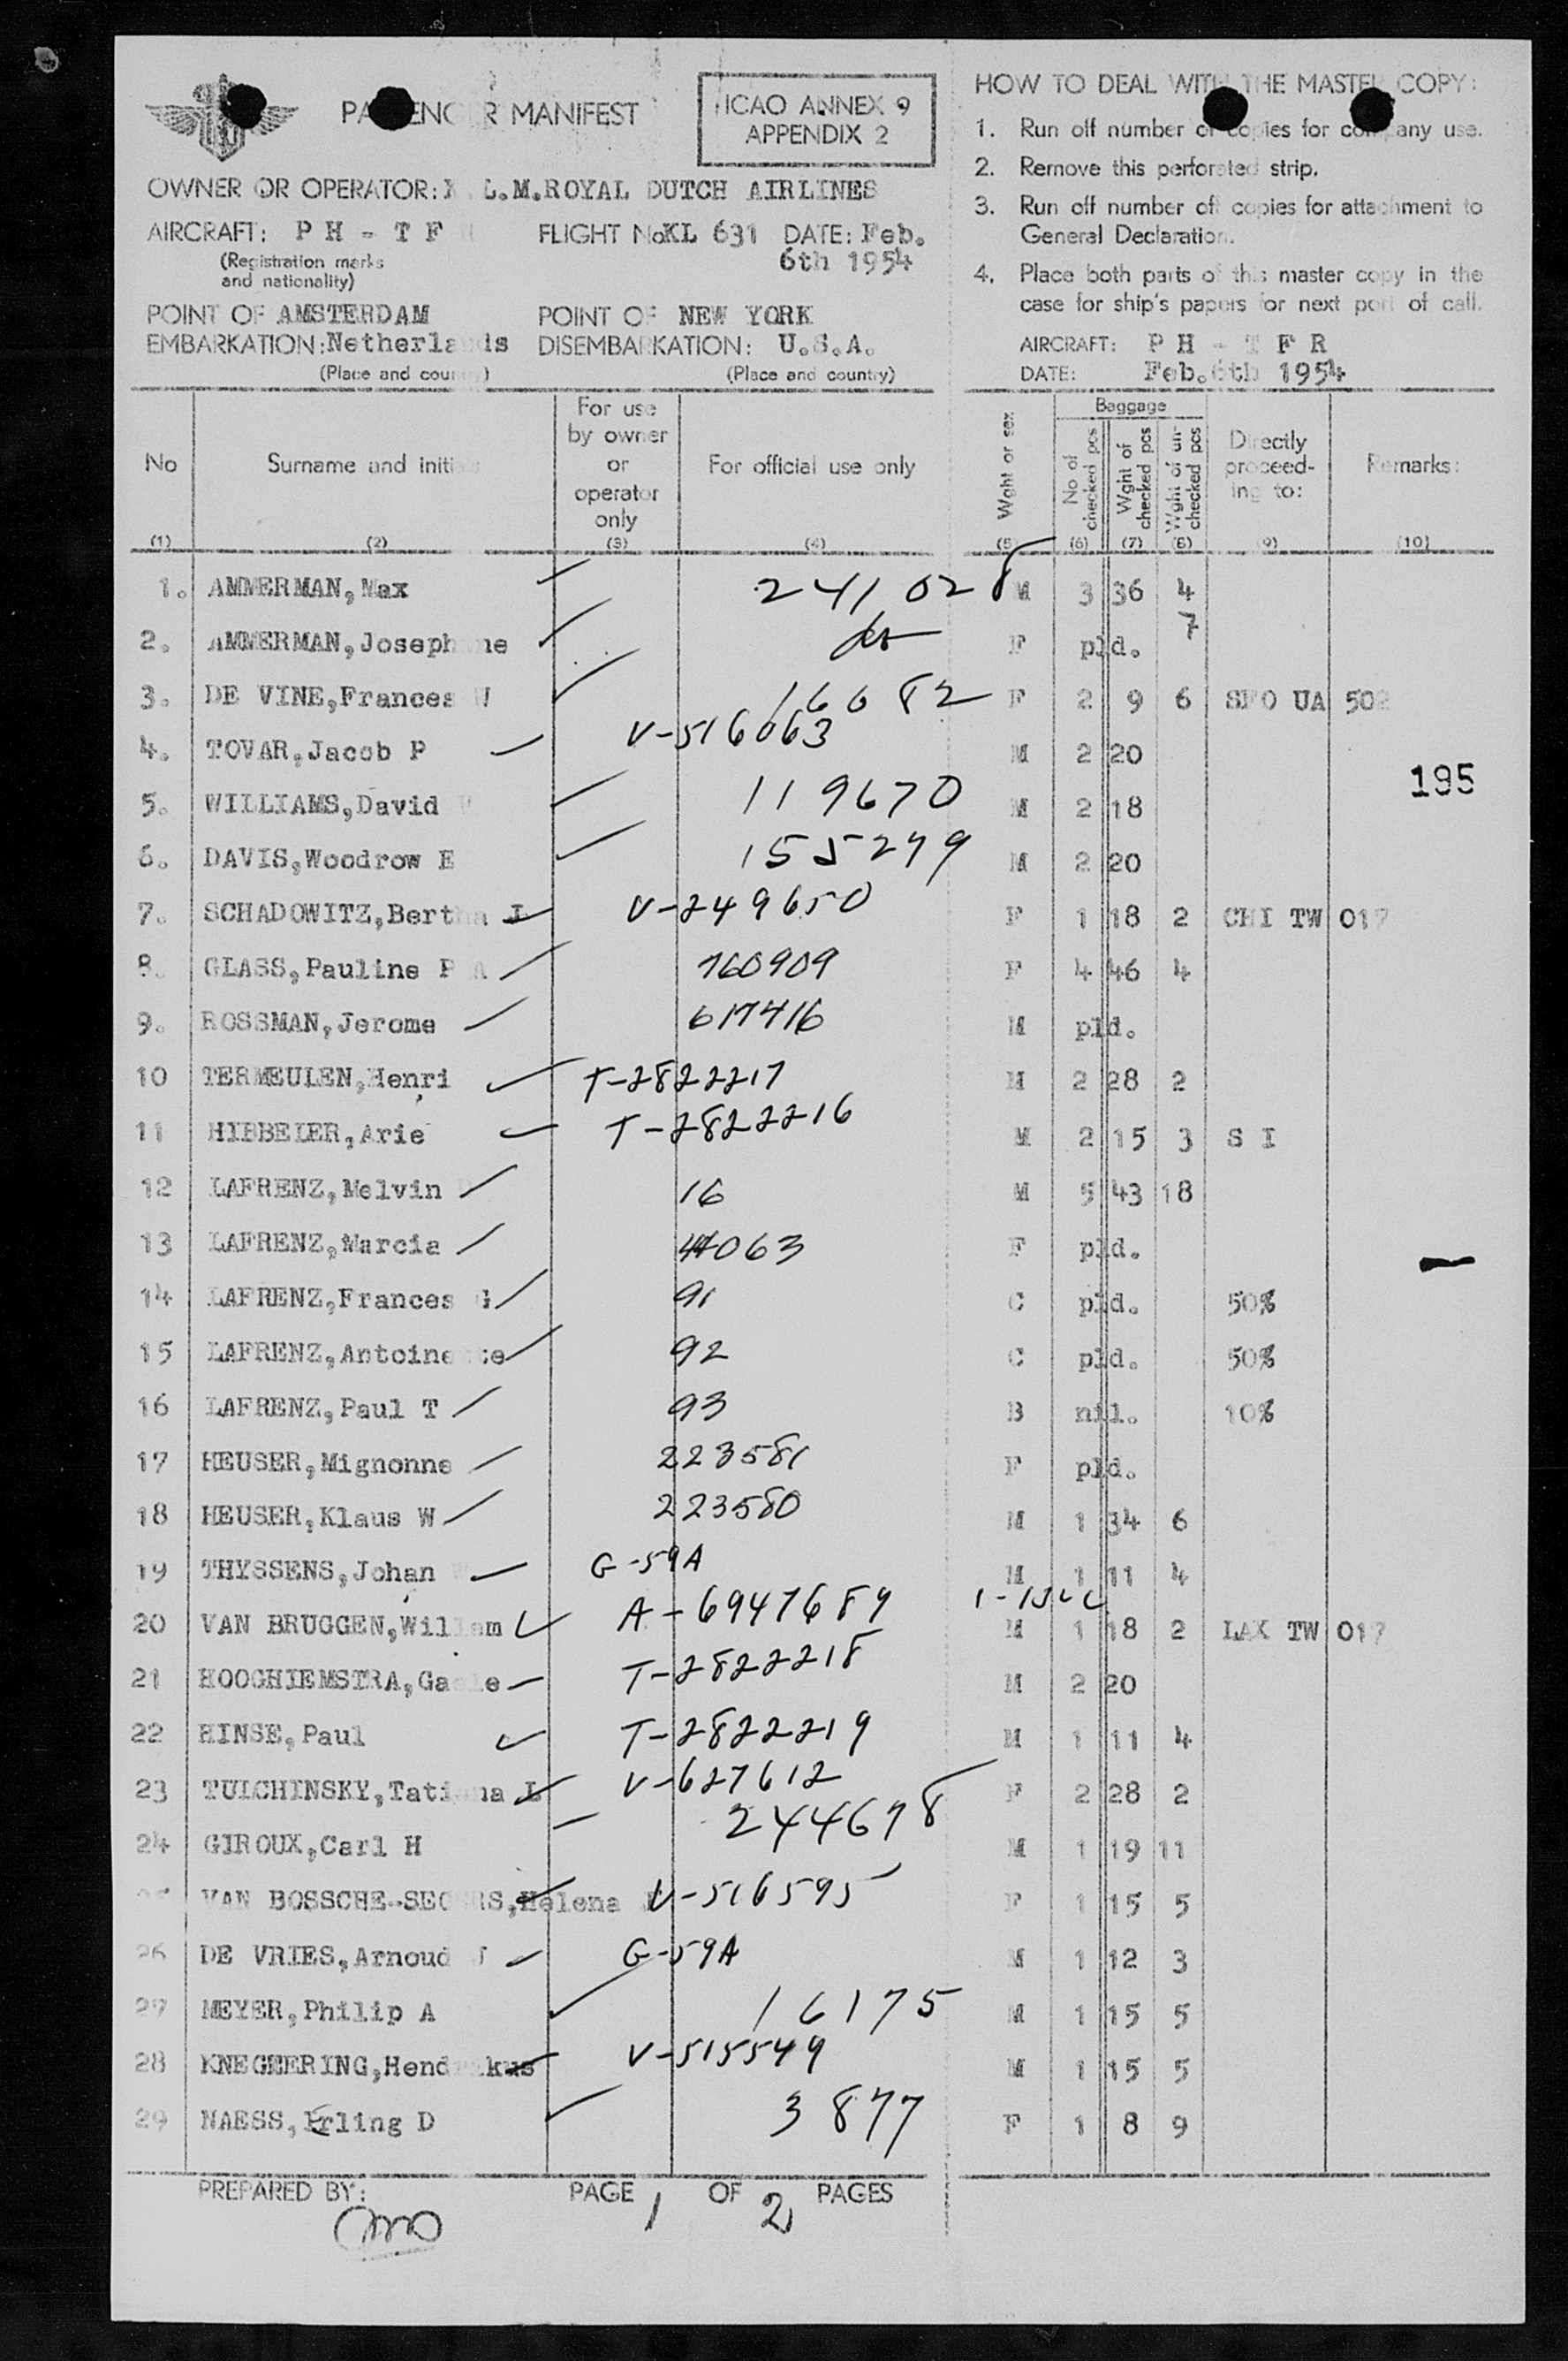 PASSENGER MANIFEST
ICAO ANNEX 9
APPENDIX 2
OWNER OR OPERATOR: K.L.M.ROYAL DUTCH AIRLINES
AIRCRAFT: P H - T F FLIGHT No KL 631 DATE: Feb.
(Registration marks
and nationality)
6th 1954
POINT OF AMSTERDAM POINT OF NEW YORK
EMBARKATION: Netherlands DISEMBARKATION: U.S.A.
(Place and country) (Place and country)
HOW TO DEAL WITH THE MASTER COPY:
1. Run off number of copies for company use.
2. Remove this perforated strip.
3. Run off number of copies for attachment to
General Declaration.
4. Place both parts of this master copy in the
case for ship's papers for next port of call.
AIRCRAFT: P H - T F R
DATE: Feb.6th 1954
No Surname and initials For use by owner or operator only For official use only Wght or sex Baggage No of checked pcs Wght of checked pcs Wght of un-checked pcs Directly proceed-ing to: Remarks:
(1) (2) (3) (4) (5) (6) (7) (8) (9) (10)
1. AMMERMAN, Max 241028 M 3 36 4
2. AMMERMAN, Josephine do F pld. 7
3. DE VINE, Frances W 16682 F 2 9 6 SFO UA 502
4. TOVAR, Jacob P V-516063 M 2 20
195
5. WILLIAMS, David 119670 M 2 18
6. DAVIS, Woodrow E 155279 M 2 20
7. SCHADOWITZ, Bertha L V-249650 F 1 18 2 CHI TW 017
8. GLASS, Pauline P A 760909 F 4 46 4
9. ROSSMAN, Jerome 617416 M pld.
10 TERMEULEN, Henri T-2822217 M 2 28 2
11 HIBBELER, Arie T-2822216 M 2 15 3 S I
12 LAFRENZ, Melvin 16 M 5 43 18
13 LAFRENZ, Marcia 063 F pld.
14 LAFRENZ, Frances G 91 C pld. 50%
15 LAFRENZ, Antoinette 92 C pld. 50%
16 LAFRENZ, Paul T 93 B nil. 10%
17 HEUSER, Mignonne 223581 F pld.
18 HEUSER, Klaus W 223580 M 1 34 6
19 THYSSENS, Johan G-59A M 1 11 4
20 VAN BRUGGEN, Willem A-6947689 M 1 18 2 LAX TW 017
21 HOOGHIEMSTRA, Ga e T-2822218 M 2 20
22 HINSE, Paul T-2822219 M 1 11 4
23 TULCHINSKY, Tatiana L V-627612 F 2 28 2
24 GIROUX, Carl H 244678 M 1 19 11
25 VAN BOSSCHE-SEGERS, Helena V-516595 F 1 15 5
26 DE VRIES, Arnoud J G-59A M 1 12 3
27 MEYER, Philip A 16175 M 1 15 5
28 KNEGEERING, Hendrikus V-515549 M 1 15 5
29 NAESS, Erling D 3877 F 1 8 9
PREPARED BY: PAGE 1 OF 2 PAGES